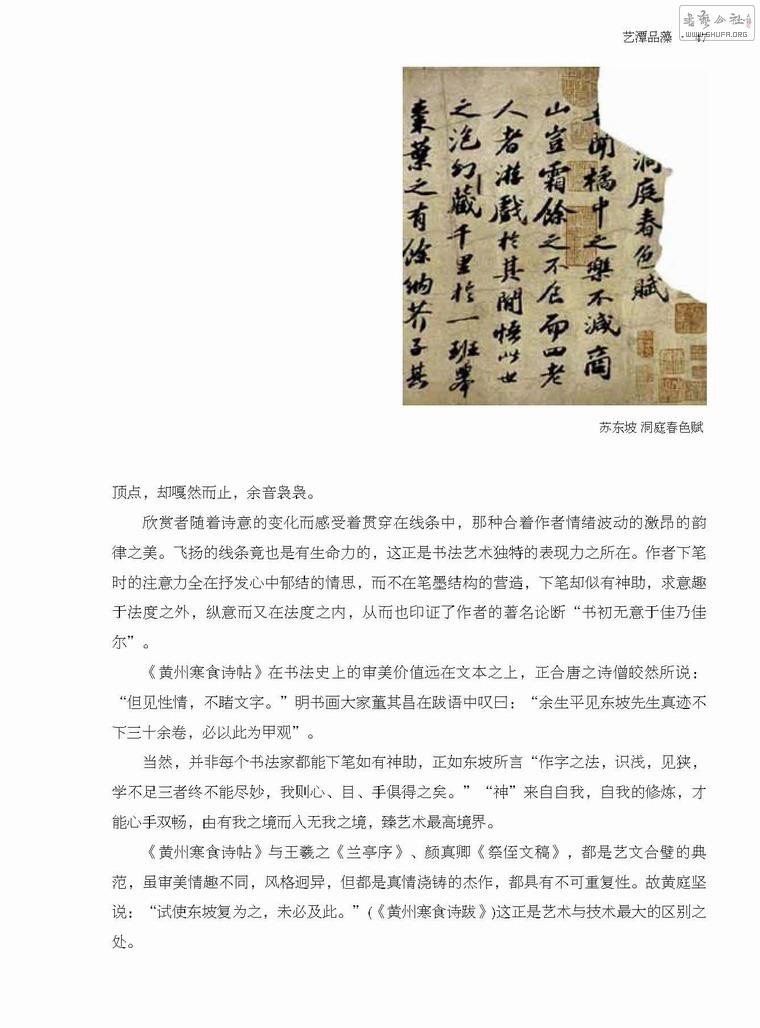 艺潭品藻 · 47
书艺公社
WWW.SHUFA.ORG
洞庭春色賦
聞橘中之樂不減商
山豈霜餘之不食而四老
人者游戲於其間悟此世
之泡幻藏千里於一班舉
棗葉之有餘納芥子其
苏东坡 洞庭春色赋
顶点，却嘎然而止，余音袅袅。
欣赏者随着诗意的变化而感受着贯穿在线条中，那种合着作者情绪波动的激昂的韵
律之美。飞扬的线条竟也是有生命力的，这正是书法艺术独特的表现力之所在。作者下笔
时的注意力全在抒发心中郁结的情思，而不在笔墨结构的营造，下笔却似有神助，求意趣
于法度之外，纵意而又在法度之内，从而也印证了作者的著名论断“书初无意于佳乃佳
尔”。
《黄州寒食诗帖》在书法史上的审美价值远在文本之上，正合唐之诗僧皎然所说：
“但见性情，不睹文字。”明书画大家董其昌在跋语中叹曰：“余生平见东坡先生真迹不
下三十余卷，必以此为甲观”。
当然，并非每个书法家都能下笔如有神助，正如东坡所言“作字之法，识浅，见狭，
学不足三者终不能尽妙，我则心、目、手俱得之矣。”“神”来自自我，自我的修炼，才
能心手双畅，由有我之境而入无我之境，臻艺术最高境界。
《黄州寒食诗帖》与王羲之《兰亭序》、颜真卿《祭侄文稿》，都是艺文合璧的典
范，虽审美情趣不同，风格迥异，但都是真情浇铸的杰作，都具有不可重复性。故黄庭坚
说：“试使东坡复为之，未必及此。”(《黄州寒食诗跋》)这正是艺术与技术最大的区别之
处。